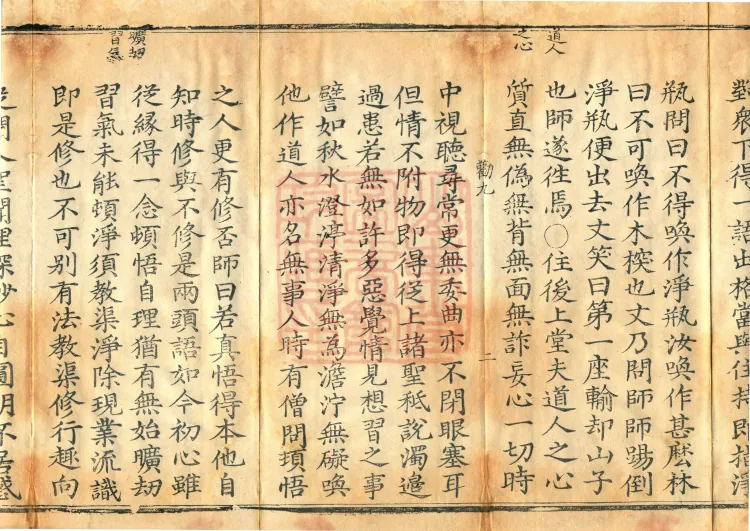 對衆下得一語出格當與住持即指淨
道人
之心
瓶問曰不得喚作淨瓶汝喚作甚麽林
曰不可喚作木𣔻也丈乃問師師踢倒
淨瓶便出去丈笑曰第一座輸却山子
也師遂徃焉〇住後上堂夫道人之心
質直無僞無背無面無詐妄心一切時
勸九
二
中視聽尋常更無委曲亦不閉眼塞耳
但情不附物即得從上諸聖秪說濁邊
過患若無如許多惡覺情見想習之事
譬如秋水澄渟清淨無為澹泞無礙喚
他作道人亦名無事人時有僧問頓悟
曠劫
習氣
之人更有修否師曰若真悟得本他自
知時修與不修是兩頭語如今初心雖
從緣得一念頓悟自理猶有無始曠劫
習氣未能頓淨須教渠淨除現業流識
即是修也不可别有法教渠修行趣向
門入聞理深妙心自圓明不居惑